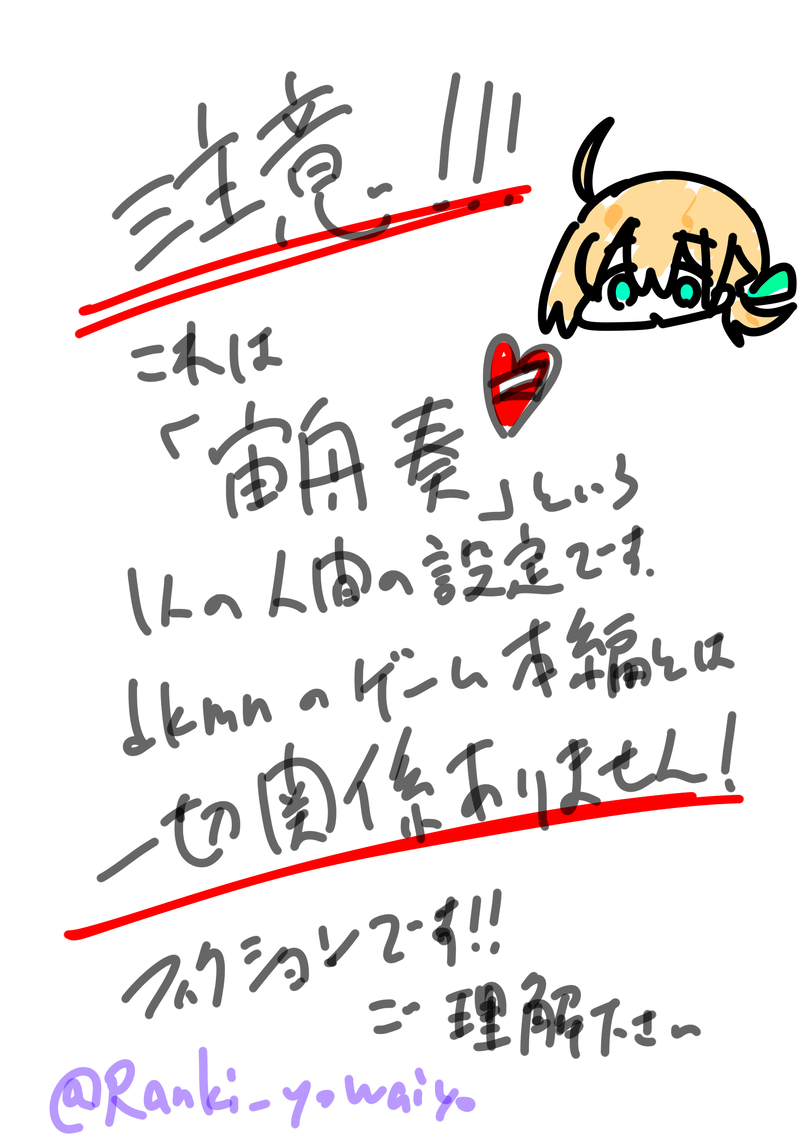 注意!!!
これは
「宙舟 奏」という
1人の人間の設定です.
dkmnのゲーム本編とは
一切関係ありません!
フィクションです!!
ご理解下さい
@Ranki_yowaiyo